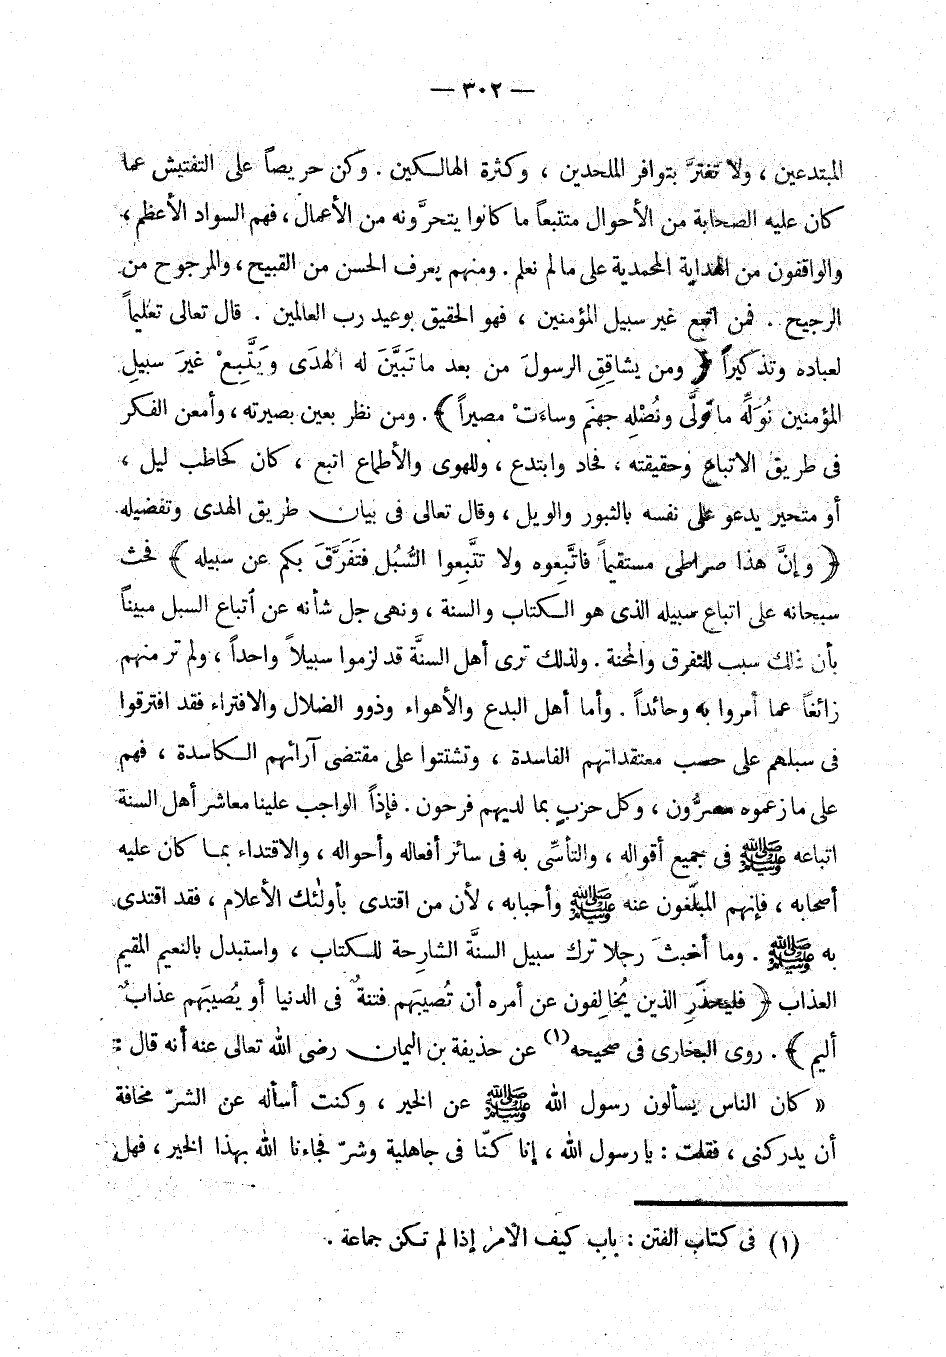 — ٣٠٢ —
المبتدعين ، ولا تغترَّ بتوافر الملحدين ، وكثرة الهالكين . وكن حريصاً على التفتيش عما
كان عليه الصحابة من الأحوال متتبعاً ما كانوا يتحرَّونه من الأعمال ، فهم السواد الأعظم ،
والواقفون من الهداية المحمدية على مالم نعلم . ومنهم يعرف الحسن من القبيح ، والمرجوح من
الرجيح . فمن اتبع غير سبيل المؤمنين ، فهو الحقيق بوعيد رب العالمين . قال تعالى تعليما
لعباده وتذكيراً ﴿ ومن يشاقِقِ الرسولَ من بعد ما تَبيَّنَ له الهدَى ويَتَّبِعْ غيرَ سبيلِ
المؤمنين نُوَلِّه ما تولَّى ونُصْلِه جهنَم وساءَتْ مصيراً ﴾ . ومن نظر بعين بصيرته ، وأمعن الفكر
فى طريق الاتباع وحقيقته ، فحاد وابتدع ، وللهوى والأطماع اتبع ، كان كحاطب ليل ،
أو متحير يدعو على نفسه بالثبور والويل ، وقال تعالى فى بيان طريق الهدى وتفضيله
﴿ وإنَّ هذا صراطى مستقيماً فاتَّبعوه ولا تتَّبعوا السُّبُل فتَفَرَّقَ بكم عن سبيله ﴾ فحث
سبحانه على اتباع سبيله الذى هو الكتاب والسنة ، ونهى جل شأنه عن أتباع السبل مبيناً
بأن ذلك سبب للتفرق والمحنة . ولذلك ترى أهل السنَّة قد لزموا سبيلاً واحداً ، ولم تر منهم
زائغاً عما أمروا به وحائداً . وأما أهل البدع والأهواء وذوو الضلال والافتراء فقد افترقوا
فى سبلهم على حسب معتقداتهم الفاسدة ، وتشتتوا على مقتضى آرائهم الكاسدة ، فهم
على ما زعموه مصرُّون ، وكل حزبٍ بما لديهم فرحون . فإذاً الواجب علينا معاشر أهل السنة
اتباعه ﷺ فى جميع أقواله ، والتأسِّى به فى سائر أفعاله وأحواله ، والاقتداء بما كان عليه
أصحابه ، فإنهم المبلّغون عنه ﷺ وأحبابه ، لأن من اقتدى بأولئك الأعلام ، فقد اقتدى
به ﷺ . وما أخبثَ رجلا ترك سبيل السنَّة الشارِحة للكتاب ، واستبدل بالنعيم المقيم
العذاب ﴿ فليحذَرِ الذين يُخالِفون عن أمره أن تُصيبَهم فتنةٌ فى الدنيا أو يُصيبَهم عذابٌ
أليم ﴾ . روى البخارى فى صحيحه(١) عن حذيفة بن اليمان رضى الله تعالى عنه أنه قال :
« كان الناس يسألون رسول الله ﷺ عن الخير ، وكنت أسأله عن الشرّ مخافة
أن يدركنى ، فقلت : يا رسول الله ، إنا كنّا فى جاهلية وشرّ فجاءنا الله بهذا الخير ، فهل
(١) فى كتاب الفتن : باب كيف الأمرُ إذا لم تكن جماعة .